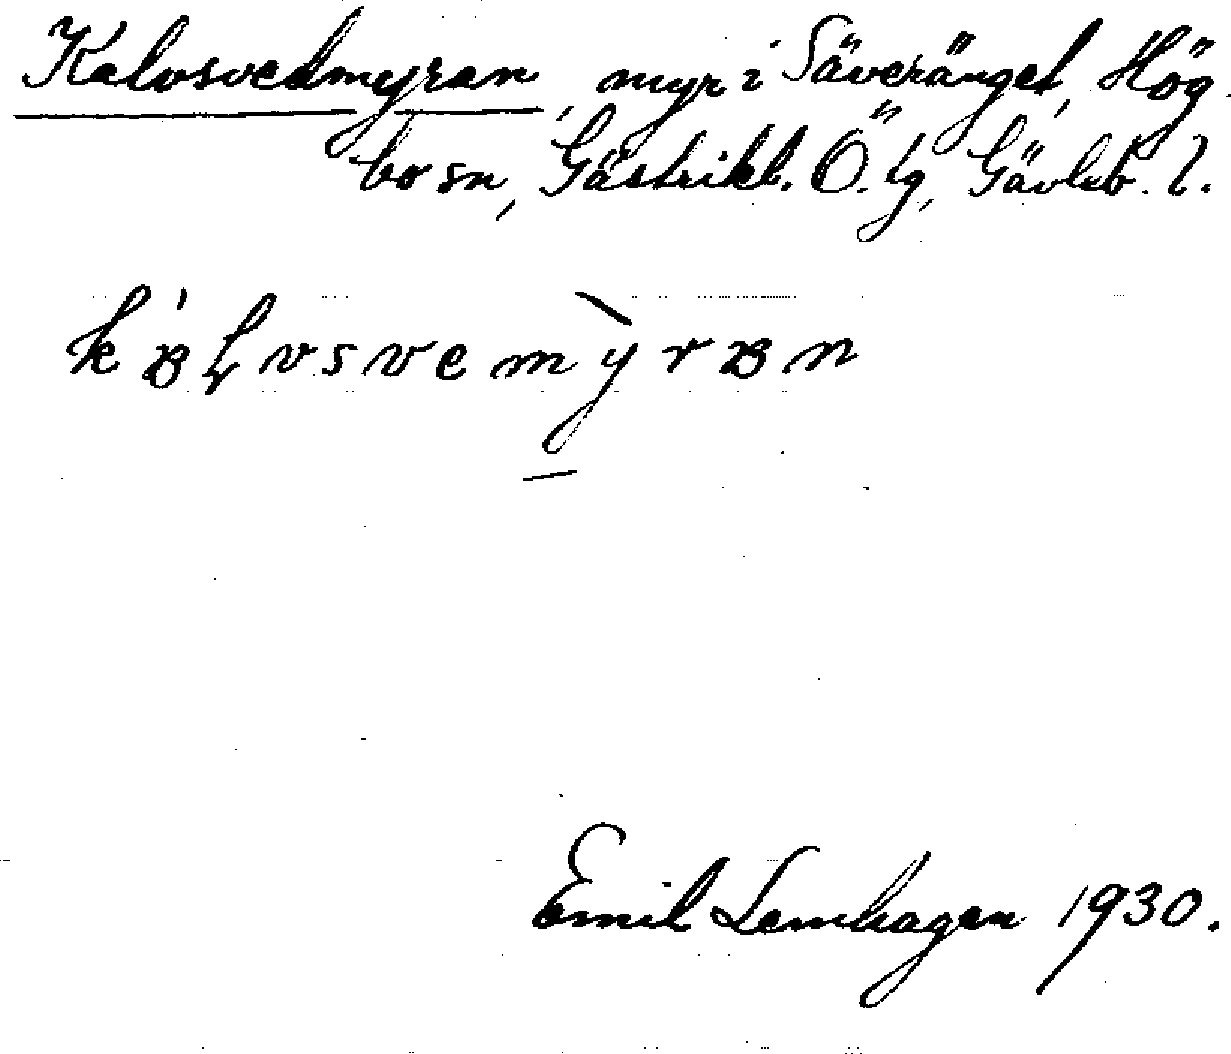 Kalvsvedmyran, myr i Säveränget, Hög-
bo sn, Gästrikl. Ö. tg, Gävleb. l.
kʹaɽvsvemỳran
Emil Lemhagen 1930.